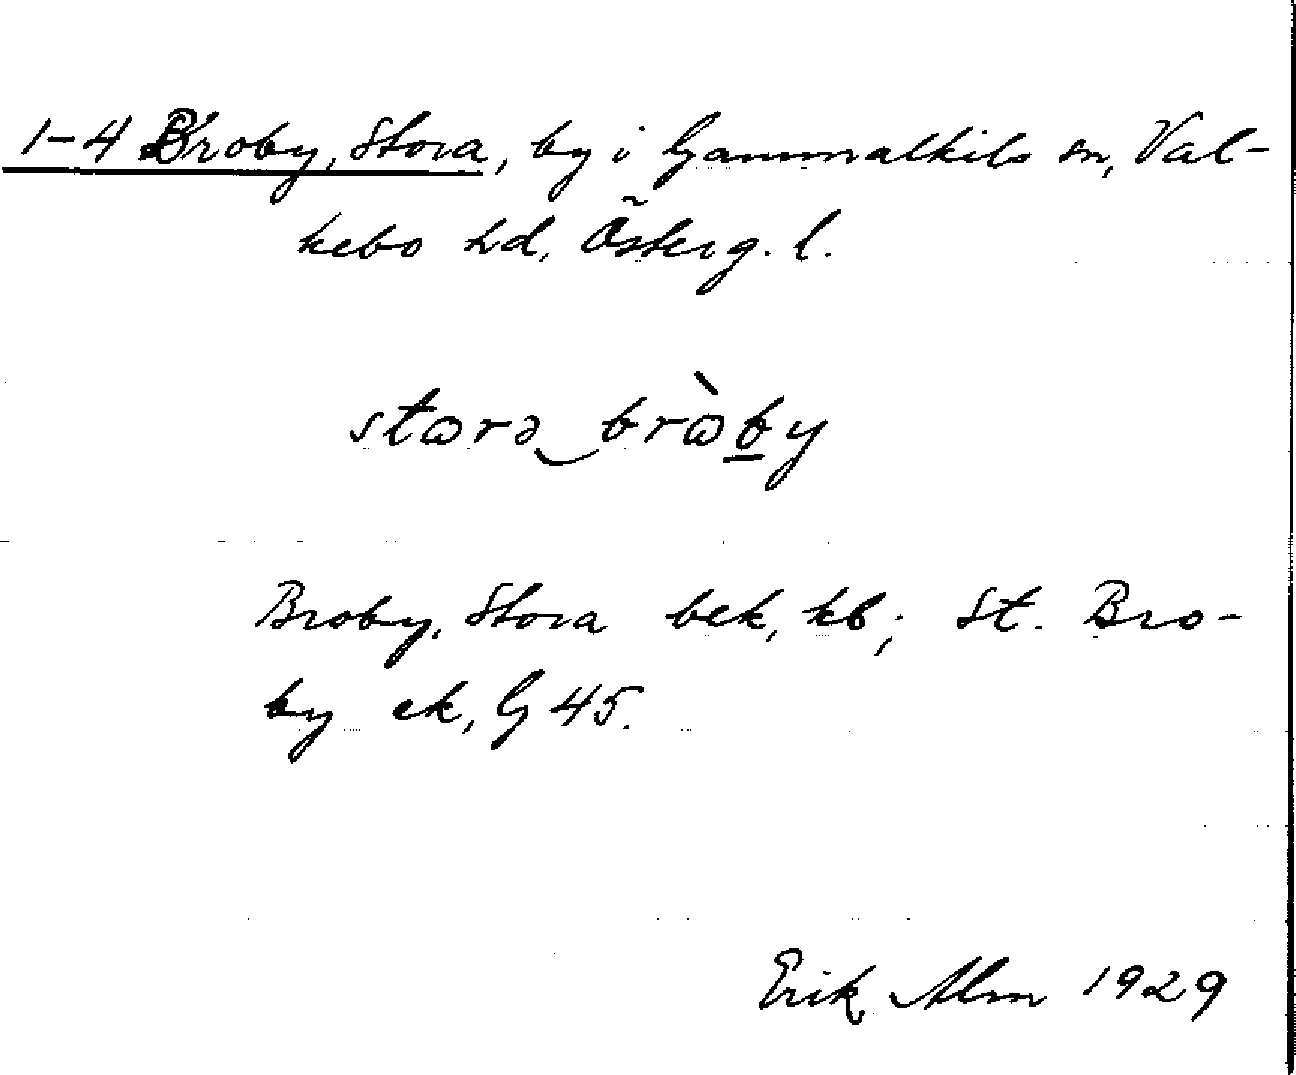 1-4 Broby, Stora, by i Gammalkils sn, Val-
kebo hd, Österg. l.
stɷrə brɷ̀by
Broby, Stora bek, kb; St. Bro-
by ek, G 45.
Erik Alm 1929